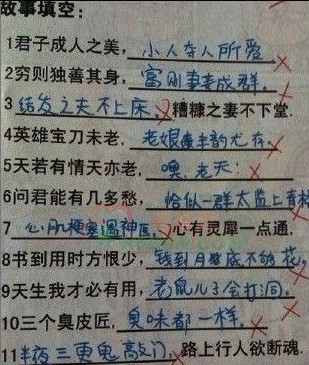 故事填空:
1君子成人之美, 小人夺人所爱 ×
2穷则独善其身, 富则妻妾成群. ×
3 结发之夫不上床, × 糟糠之妻不下堂.
4英雄宝刀未老, 老娘丰韵尤存. ×
5天若有情天亦老, 噢,老天! ×
6问君能有几多愁, 恰似一群太监上青楼
7 心肌梗塞遇神医, × 心有灵犀一点通,
8书到用时方恨少, 钱到月底不够花. ×
9天生我才必有用, 老鼠儿子会打洞. ×
10三个臭皮匠, 臭味都一样. ×
11半夜三更鬼敲门, × 路上行人欲断魂.